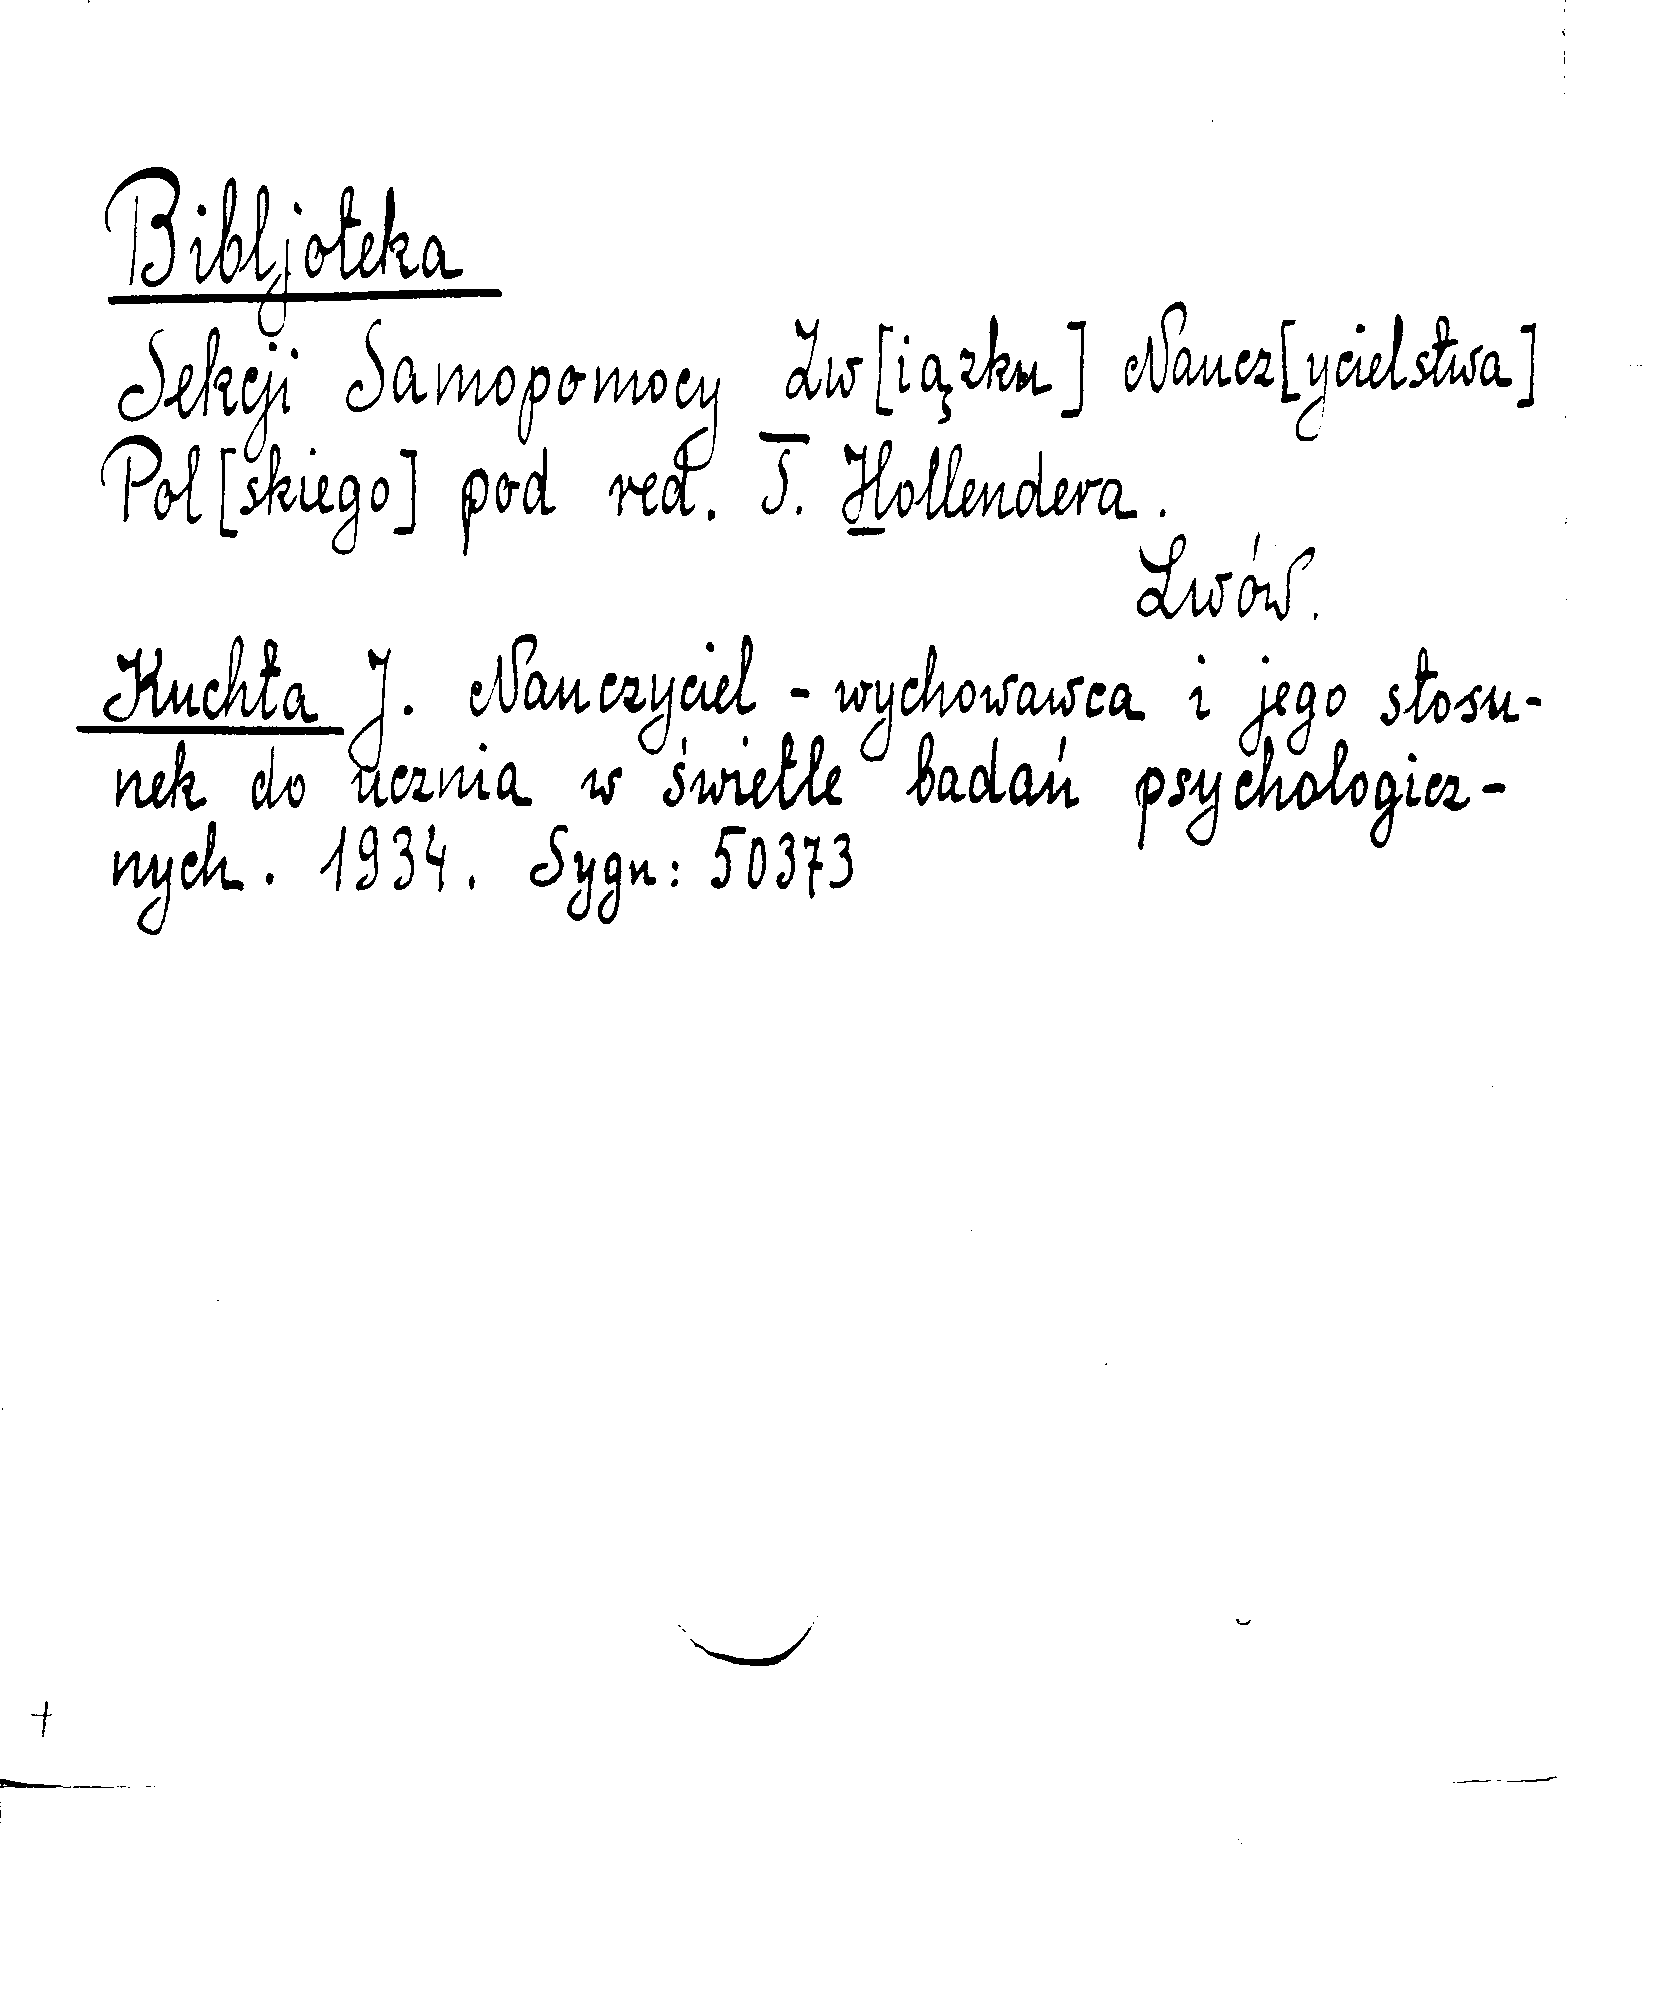 Bibljoteka
Sekcji Samopomocy Zw[iązku] Naucz[ycielstwa]
Pol[skiego] pod red. T. Hollendera.
Lwów.
Kuchta J. Nauczyciel - wychowawca i jego stosu-
nek do ucznia w świetle badań psychologicz-
nych. 1934. Sygn: 50373